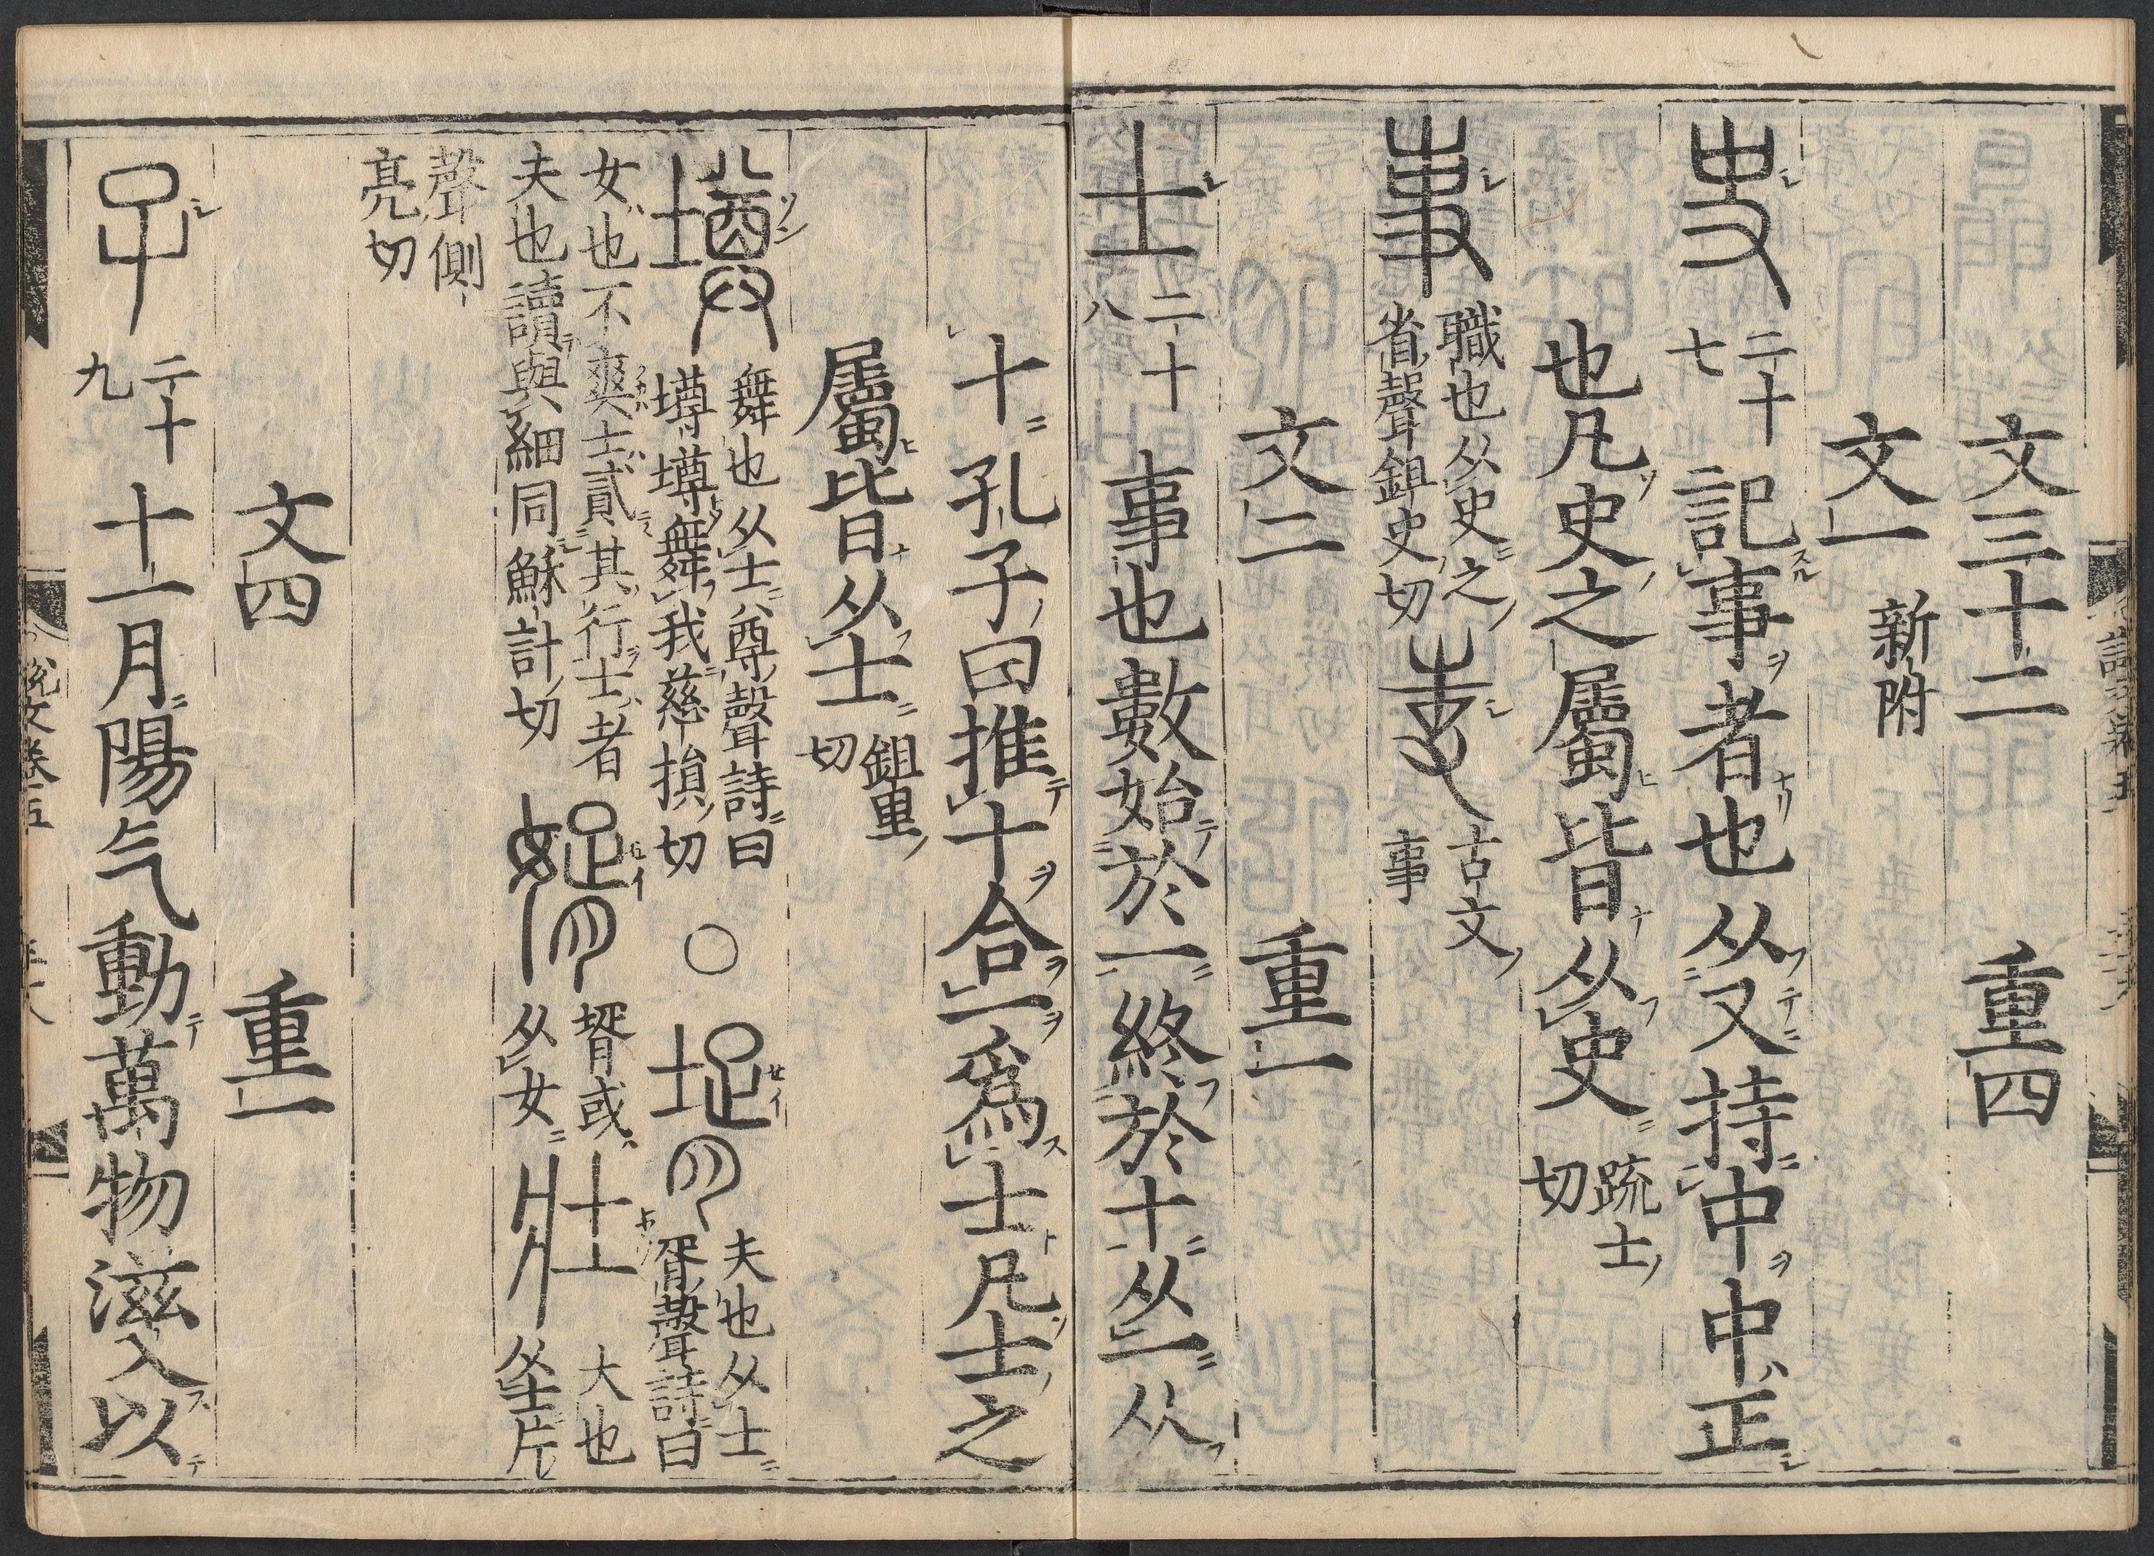 文三十二　重四
文一　新附
史 二十七 記事者也从又持中中正
也凡史之屬皆从史 疏士切
事 職也从史之省聲鉏史切 古文事
文二　重一
士 二十八 事也數始於一終於十从一从
十孔子曰推十合一爲士凡士之
屬皆从士 鉏里切
壿 舞也从士尊聲詩曰壿壿舞我慈損切 ○ 壻 夫也从士胥聲詩曰
女也不爽士貳其行士者夫也讀與細同穌計切 婿 壻或从女 壯 大也从士爿
聲側亮切
文四　重一
子 二十九 十一月陽气動萬物滋入以
說文卷五